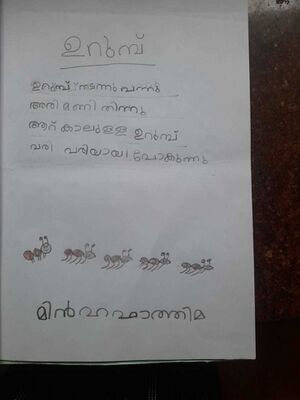 ഉറുമ്പ്
ഉറുമ്പ് നടന്നു വന്നു
അരി മണി തിന്നു
ആറ് കാലുള്ള ഉറുമ്പ്
വരി വരിയായി പോകുന്നു
മിൻഹഫാത്തിമ